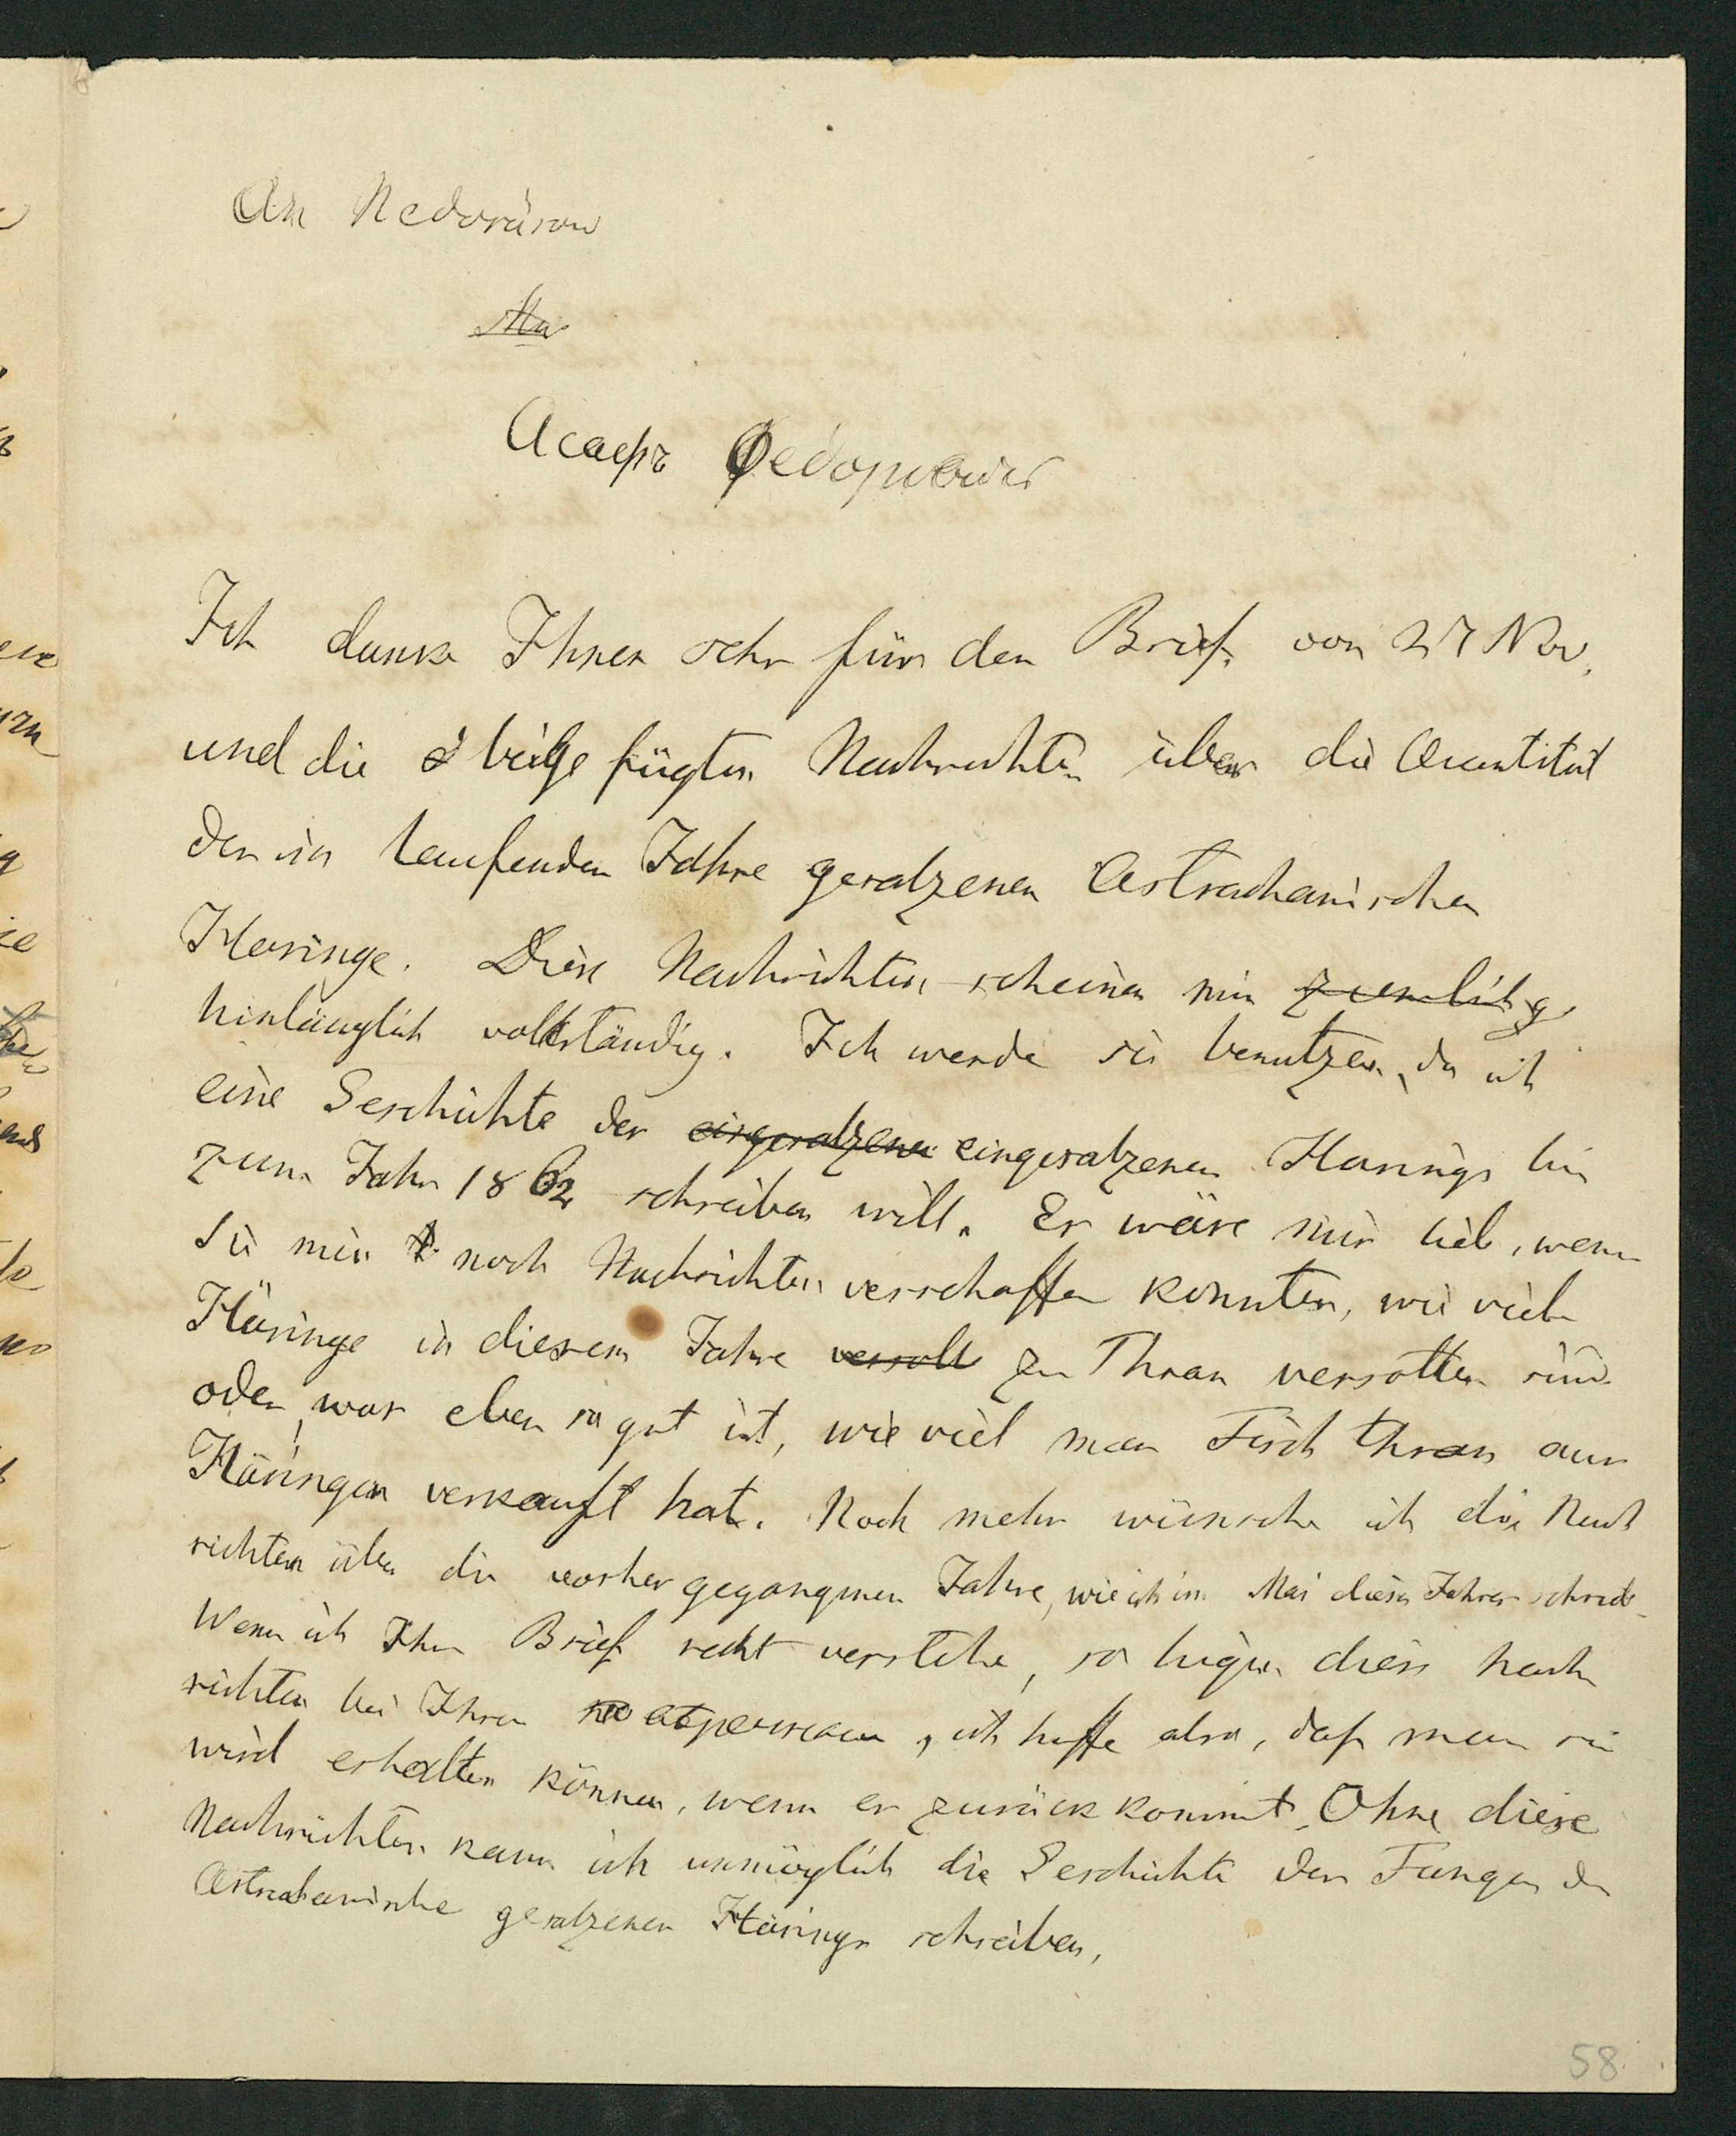 An Nedoräsow
Асафъ Федоровичъ
Ich danke Ihnen sehr für den Brief vom 27 Nov.
und die beigefügten Nachrichten über die Quantität
der im laufenden Jahre gesalzenen Astrachanischen
Häringe. Diese Nachrichten scheinen mir ziemlich
hinlänglich vollständig. Ich werde sie benutzen, da ich
eine Geschichte der eingesalzenen eingesalzenen Härings bis
zum Jahr 1862 schreiben will. Es wäre mir lieb, wenn
Sie mir noch Nachrichten verschaffen könnten, wie viele
Häringe in diesem Jahre versott zu Thran versotten sind
oder, was eben so gut ist, wie viel man Fisch thran aus
Häringen verkauft hat. Noch mehr wünsche ich die Nach
richten über die vorhergegangenen Jahre, wie ich im Mai dieses Jahres schrieb.
Wenn ich Ihren Brief recht verstehe, so liegen diese Nach
richten bei Ihrem, ich hoffe also, daß man sie
wird erhalten können, wenn er zurück kommt. Ohne diese
Nachrichten kann ich unmöglich die Geschichte des Fanges der
Astrachanische gesalzenen Härings schreiben,
58